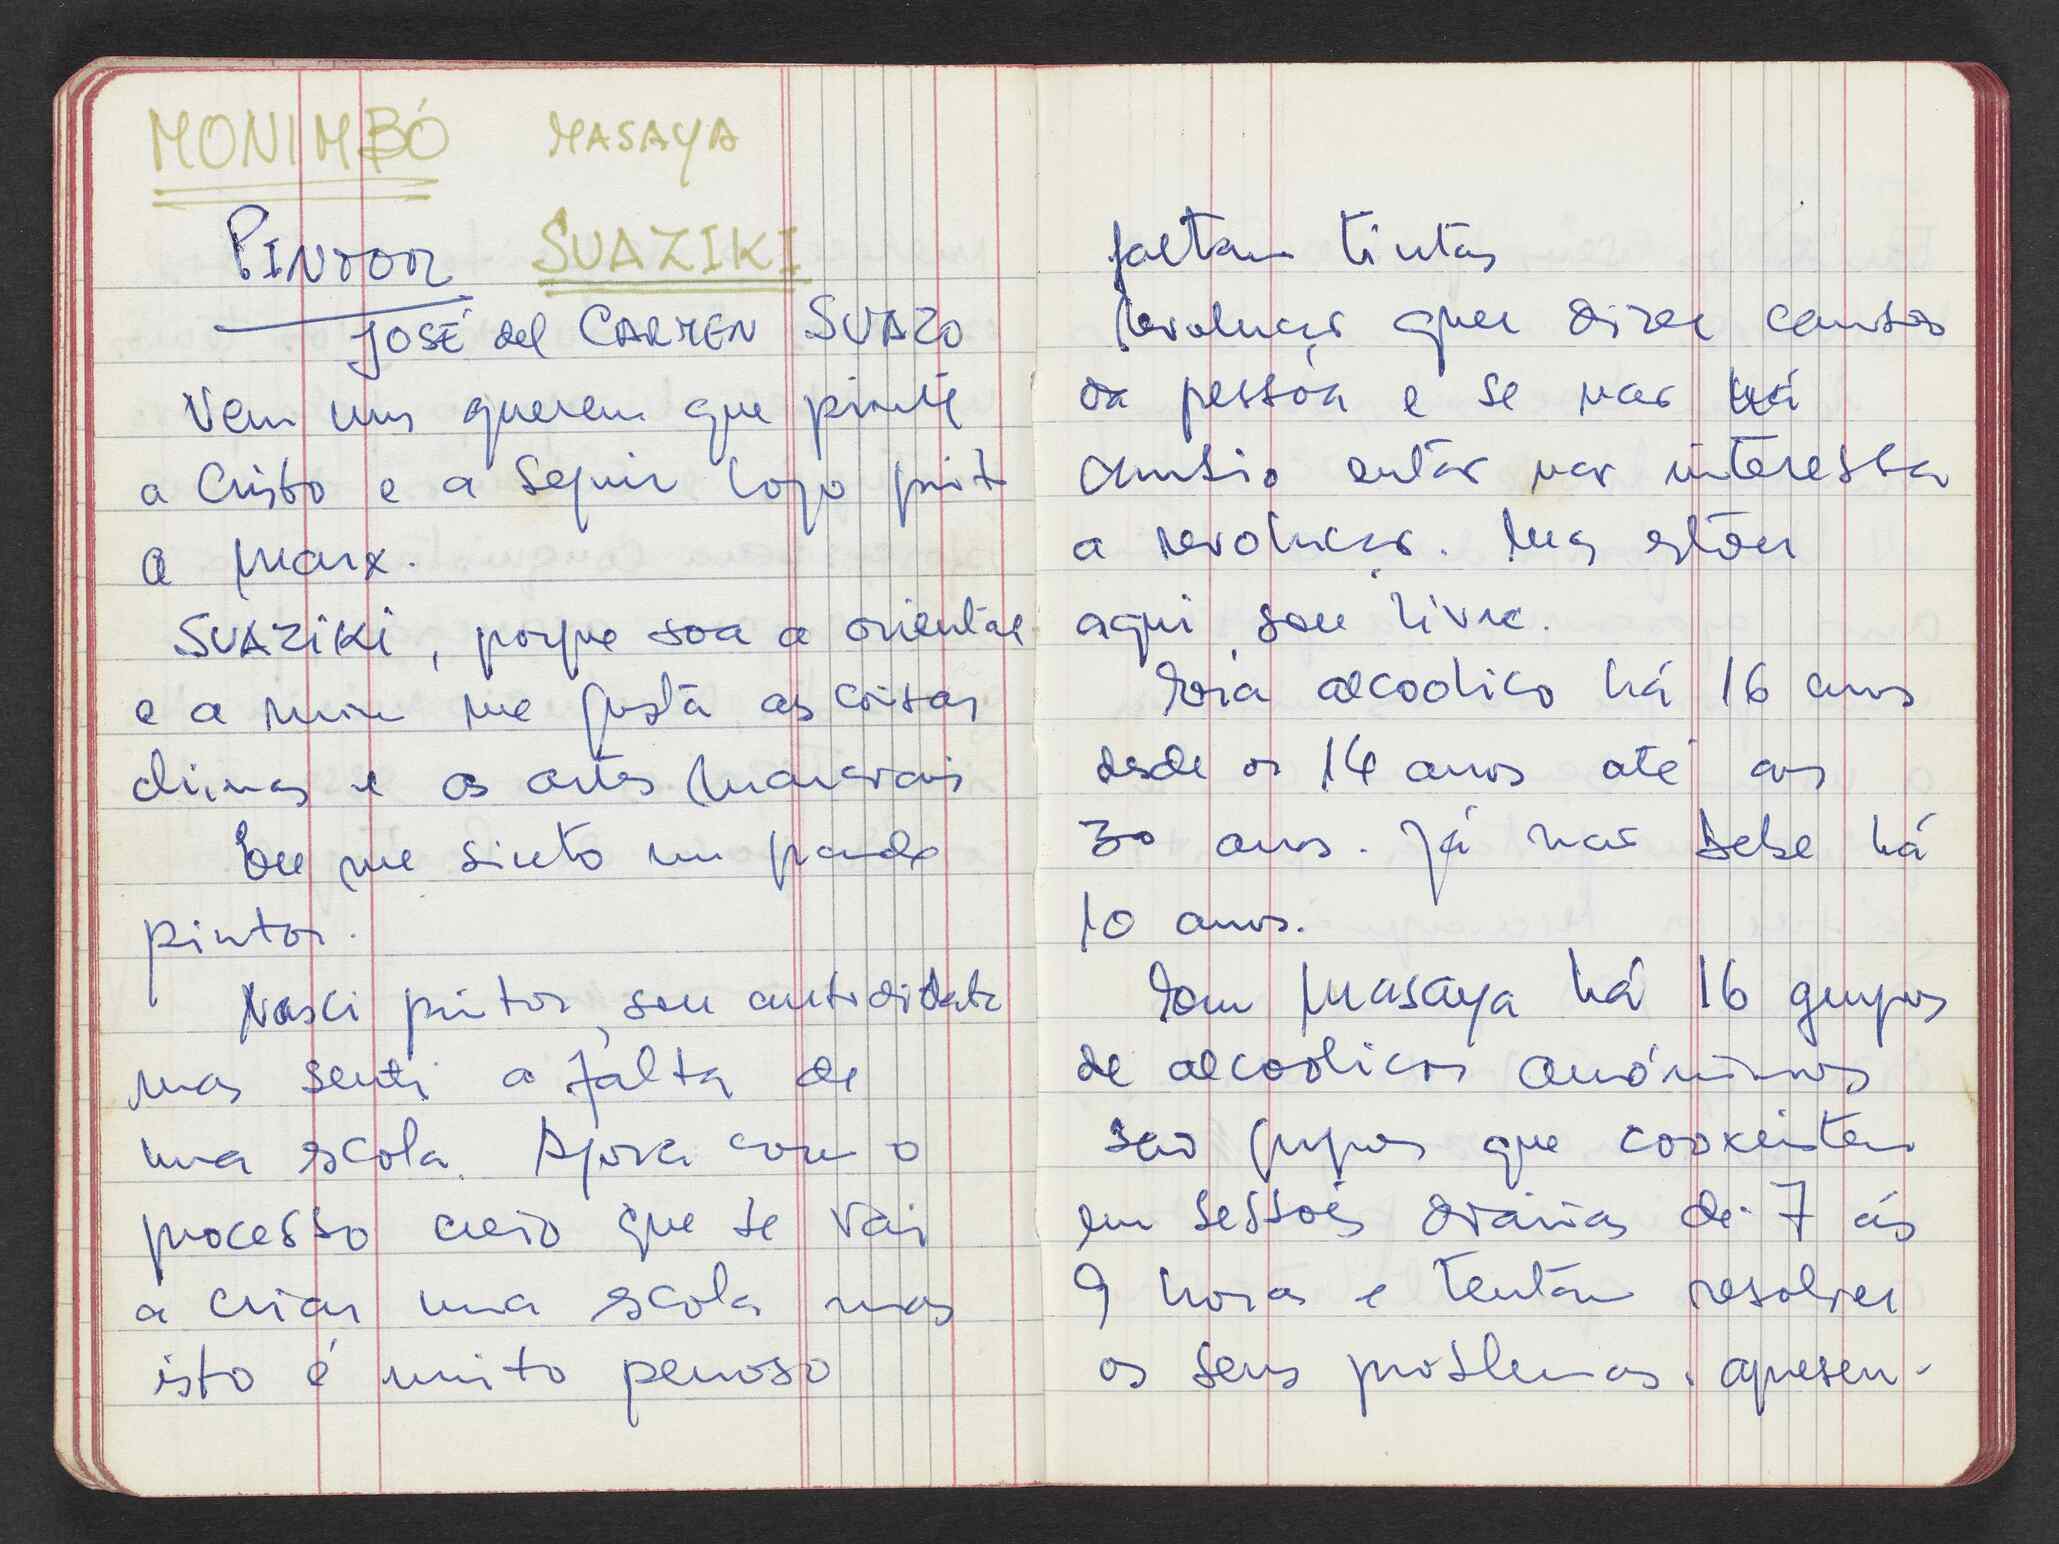 MONIMBÓ MASAYA
PINTOR SUAZIKI
JOSÉ del CARMEN SUAZO
Vem uns querem que pinte
a Cristo e a seguir logo pint
a Marx.
SUAZIKI, porque soa a oriental
e a mim me gosta as coisas
chinas e as artes marciais
Eu me sinto um grande
pintor.
Nasci pintor, sou autodidata
mas senti a falta de
uma escola. Agora com o
processo creio que se vai
a criar uma escola mas
isto é muito penoso
faltam tintas
Revolução quer dizer
da pessoa e se nao há
cambio então nao interessa
a revolução. Mas estou
aqui, sou livre.
alcoolico há 16 anos
desde os 14 anos até aos
30 anos. Já nao bebe há
10 anos.
Em Masaya há 16 grupos
de alcoolicos anónimos
sao grupos que
em sessões diárias de 7 ás
9 horas e tentam resolver
os seus problemas. apresen-